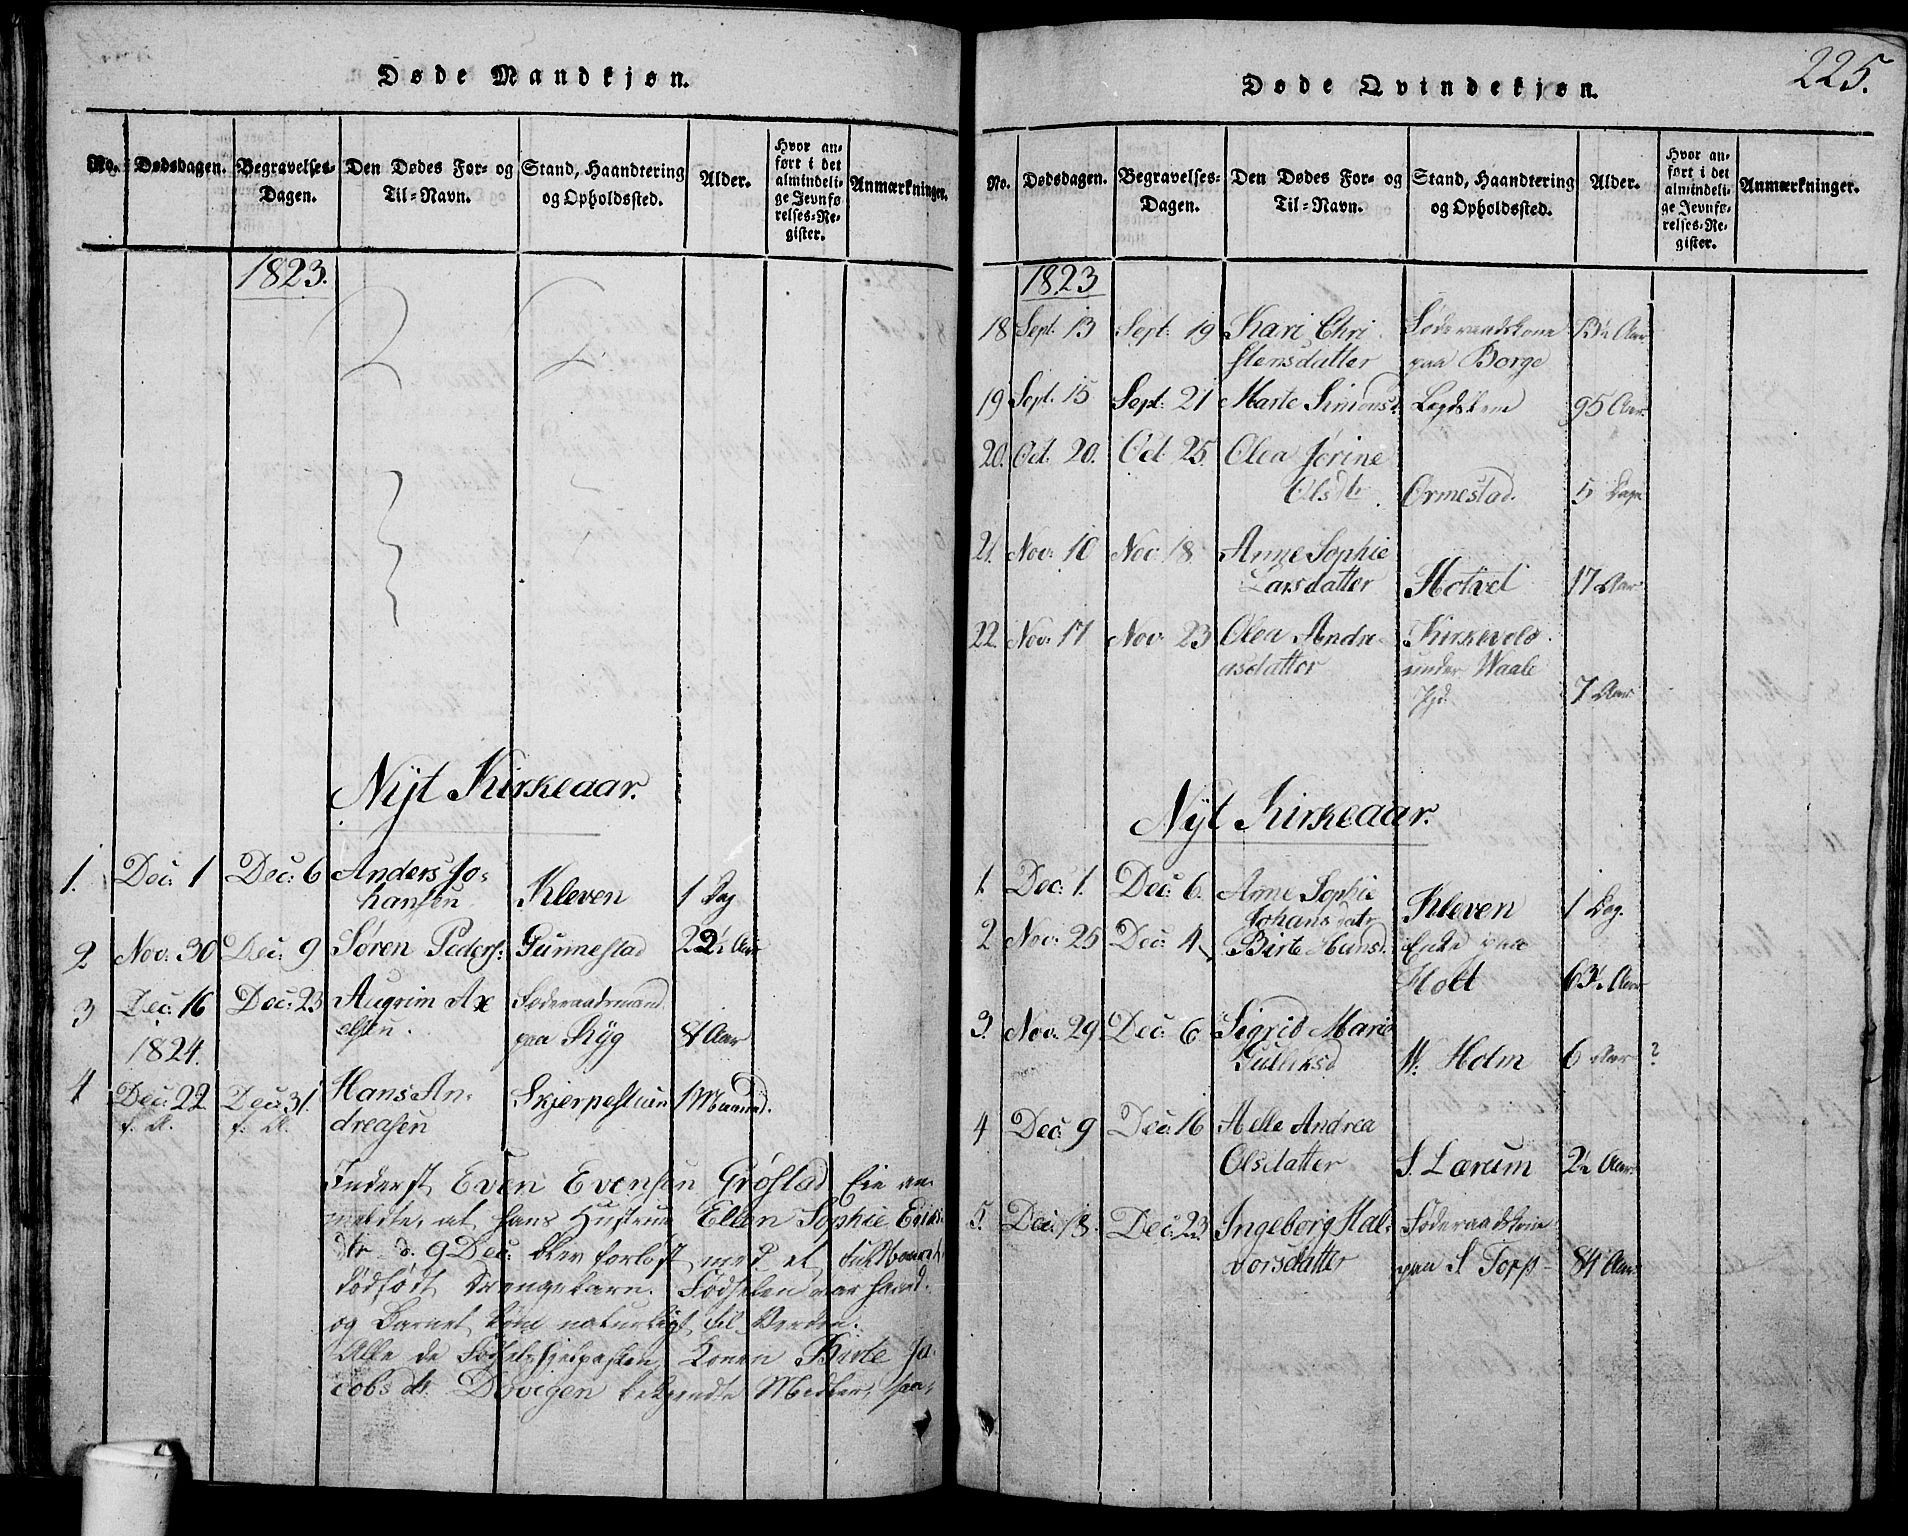 Døde Mandkjøn.
No. Dødsdagen. Begravelses-Dagen. Den Dødes For- og Til-Navn. Stand, Haandtering og Opholdssted. Alder. Hvor anført i det almindelige Jevnførelses-Register. Anmærkninger.
1823.
Nyt Kirkeaar.
1. Dec: 1 Dec: 6 Anders Jo-
hansen Kleven 1 Dag
2 Nov: 30 Dec: 9 Søren Peders: Gunnestad 22½ Aar
3 Dec: 16 Dec: 23 Augrim Ax
elsen. Føderaadsmand
paa Ryg Aar
1824.
4 Dec: 22 Dec: 31. Hans An-
f. A. f. A. dreasen Skjerpestuen 1 Maaned.
Inderst Even Evensen Grøstad Eie an-
meldte, at hans Hustrue Ellen Sophie
dtr d. 9 Dec: blev forløst med et
dødfødt Drengebarn. Fødselen var haard
og Barnet kom naturligt til Verden.
Alle de Konen Birte Ja-
cobs dt. Døvigen Midler,
225.
Døde Qvindekjøn.
No. Dødsdagen. Begravelses-Dagen. Den Dødes For- og Til-Navn. Stand, Haandtering og Opholdssted. Alder. Hvor anført i det almindelige Jevnførelses-Register. Anmærkninger.
1823
18 Sept. 13 Sept: 19 Kari Chri-
stensdatter Føderaadskone
paa Borge Aar
19 Sept. 15 Sept: 21 Marte Simons Legdslem 95 Aar
20. Oct. 20. Oct: 25. Olea Jørine
Olsdtr. Ormestad. 5 Dage
21. Nov: 10 Nov: 18. Anne Sophie
Larsdatter Hotvet 17 Aar
22. Nov: 17 Nov: 23 Olea Andre-
asdatter Kirkevold
under Waale
Pgd. 7 Aar
Nyt Kirkeaar.
1. Dec: 1. Dec: 6. Anne Sophie
Johansdatr Kleven 1 Dag.
2 Nov: 25 Dec: 4 Birte Hansd. Enke paa
Holt 63½ Aar
3. Nov: 29 Dec: 6 Sigrid Marie
Gulliksd W. Holm 6 Aar ?
4 Dec: 9 Dec: 16 Helle Andrea
Olsdatter S. Lærum 2½ Aar
5. Dec: 18. Dec: 23 Ingeborg Hal-
vorsdatter Føderaadskone
paa S Torp 84 Aar